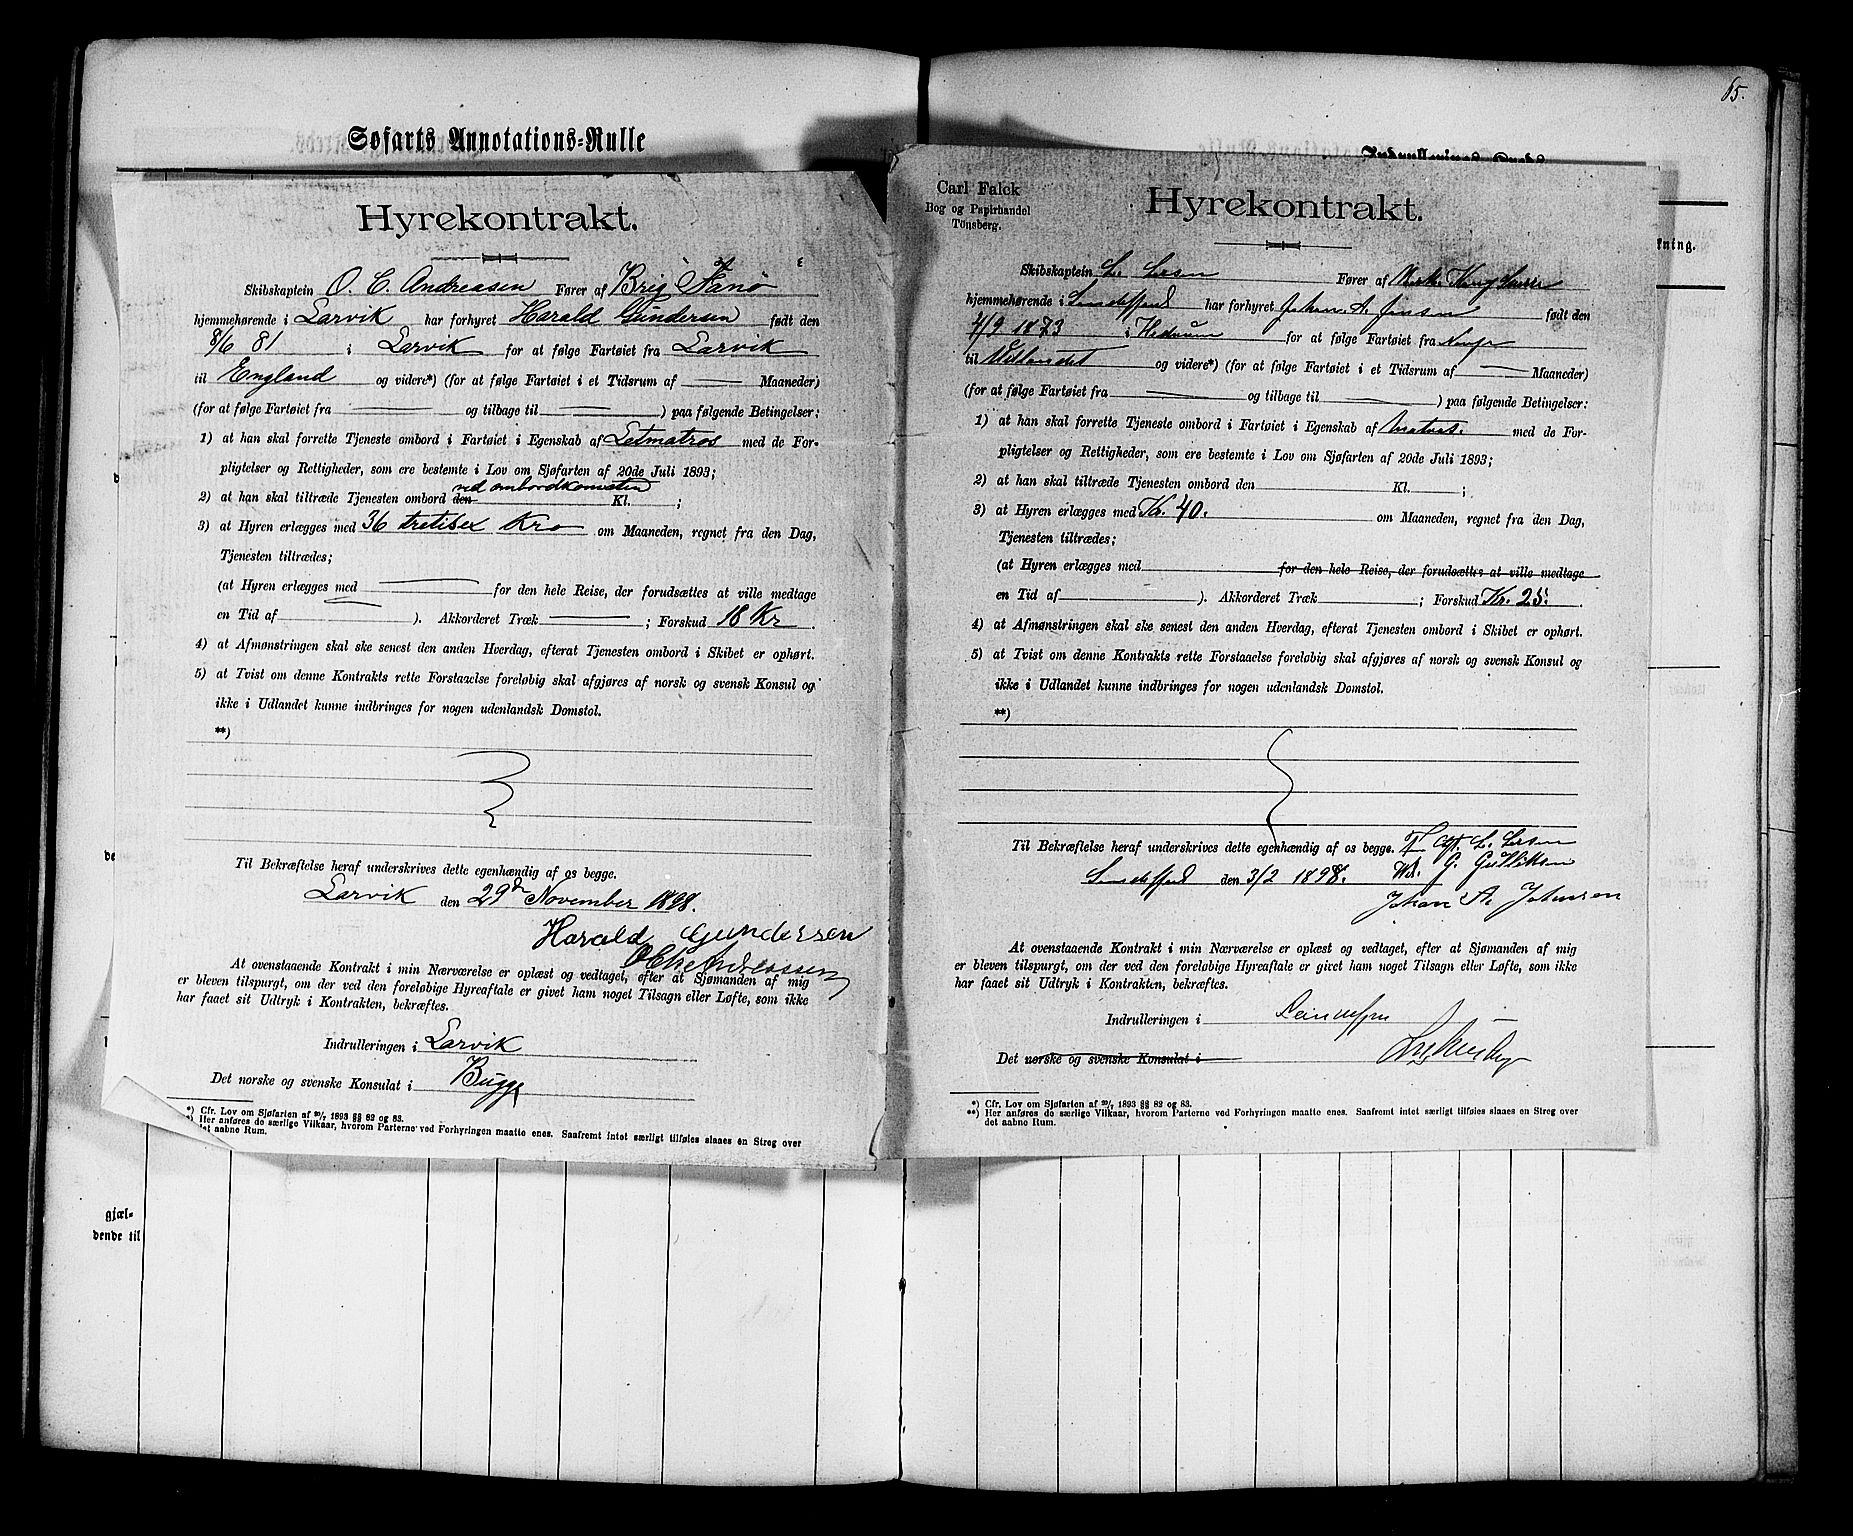 65.
Søfarts Annotations-Rulle
Hyrekontrakt.
Skibskaptein O. C. Andreasen Fører af Brig Fanø
hjemmehørende i Larvik har forhyret Harald Gundersen født den
8/6 81 i Larvik for at følge Fartøiet fra Larvik
til England og videre*) (for at følge Fartøiet i et Tidsrum af Maaneder)
(for at følge Fartøiet fra og tilbage til ) paa følgende Betingelser:
1) at han skal forrette Tjeneste ombord i Fartøiet i Egenskab af Letmatros med de For-
pligtelser og Rettigheder, som ere bestemte i Lov om Sjøfarten af 20de Juli 1893;
ved ombordkomsten
2) at han skal tiltræde Tjenesten ombord den Kl. ;
3) at Hyren erlægges med 36 tretisex Kro om Maaneden, regnet fra den Dag,
Tjenesten tiltrædes;
(at Hyren erlægges med for den hele Reise, der forudsættes at ville medtage
en Tid af ). Akkorderet Træk ; Forskud 18 Kr.
4) at Afmønstringen skal ske senest den anden Hverdag, efterat Tjenesten ombord i Skibet er ophørt.
5) at Tvist om denne Kontrakts rette Forstaaelse foreløbig skal afgjøres af norsk og svensk Konsul og
ikke i Udlandet kunne indbringes for nogen udenlandsk Domstol.
**)
Til Bekræftelse heraf underskrives dette egenhændig af os begge.
Larvik den 29de November 1898.
Harald Gunderssen
O Chr Andreassen
At ovenstaaende Kontrakt i min Nærværelse er oplæst og vedtaget, efter at Sjømanden af mig
er bleven tilspurgt, om der ved den foreløbige Hyreaftale er givet ham noget Tilsagn eller Løfte, som ikke
har faaet sit Udtryk i Kontrakten, bekræftes.
Indrulleringen i Larvik
Det norske og svenske Konsulat i Bugge
*) Cfr. Lov om Sjøfarten af 20/7 1893 §§ 82 og 83.
**) Her anføres de særlige Vilkaar, hvorom Parterne ved Forhyringen maatte enes. Saafremt intet særligt tilføies slaaes en Streg over
det aabne Rum.
gjæl-
dende til
Carl Falck
Bog og Papirhandel
Tönsberg.
Hyrekontrakt.
Skibskaptein L. Fører af
hjemmehørende i Sandefjord har forhyret Johan A. Jensen født den
4/9 1873 i Hedrum for at følge Fartøiet fra Norge
til Udlandet og videre*) (for at følge Fartøiet i et Tidsrum af Maaneder)
(for at følge Fartøiet fra og tilbage til ) paa følgende Betingelser:
1) at han skal forrette Tjeneste ombord i Fartøiet i Egenskab af Matros. med de For-
pligtelser og Rettigheder, som ere bestemte i Lov om Sjøfarten af 20de Juli 1893;
2) at han skal tiltræde Tjenesten ombord den Kl. ;
3) at Hyren erlægges med Kr. 40. om Maaneden, regnet fra den Dag,
Tjenesten tiltrædes;
(at Hyren erlægges med for den hele Reise, der forudsættes at ville medtage
en Tid af ). Akkorderet Træk ; Forskud Kr. 25.
4) at Afmønstringen skal ske senest den anden Hverdag, efterat Tjenesten ombord i Skibet er ophørt.
5) at Tvist om denne Kontrakts rette Forstaaelse foreløbig skal afgjøres af norsk og svensk Konsul og
ikke i Udlandet kunne indbringes for nogen udenlandsk Domstol.
**)
Til Bekræftelse heraf underskrives dette egenhændig af os begge.
Sandefjord den 3/2 1898. G. Gulliksen
Johan A. Johnsen
At ovenstaaende Kontrakt i min Nærværelse er oplæst og vedtaget, efter at Sjømanden af mig
er bleven tilspurgt, om der ved den foreløbige Hyreaftale er givet ham noget Tilsagn eller Løfte, som ikke
har faaet sit Udtryk i Kontrakten, bekræftes.
Indrulleringen i
Det norske og svenske Konsulat i
*) Cfr. Lov om Sjøfarten af 20/7 1893 §§ 82 og 83.
**) Her anføres de særlige Vilkaar, hvorom Parterne ved Forhyringen maatte enes. Saafremt intet særligt tilføies slaaes en Streg over
det aabne Rum.